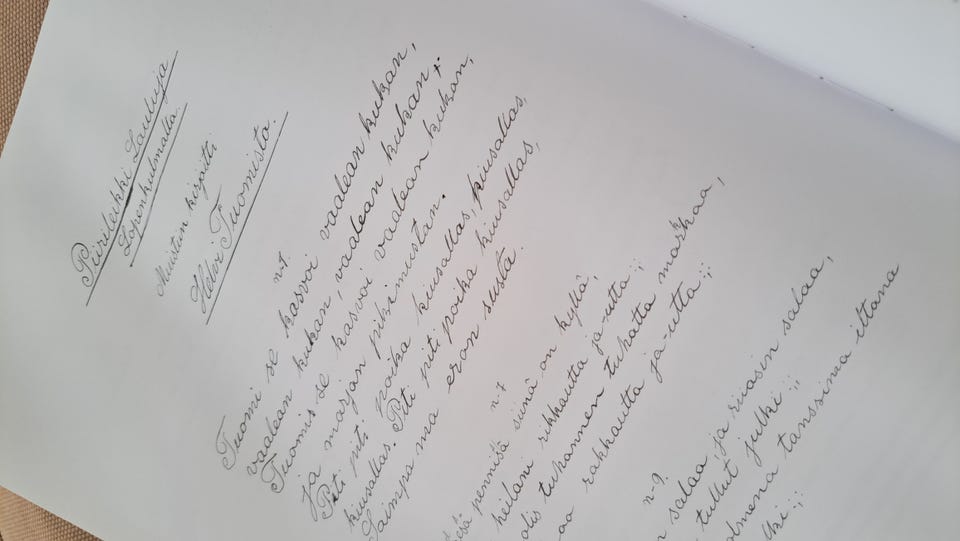 Piirileikki Lauluja
Lopenkulmalta.
Muistiin kirjoitti
Helvi Tuomista.
n 1
Tuomi se kasvoi vaalean kukan,
vaalean kukan, vaalean kukan,
Tuomi se kasvoi vaalean kukan,
ja marjan pikimustan.
Piti piti poika kiusallas, kiusallas,
kiusallas. Piti piti poika kiusallas,
Saimpa ma eron susta.
pennisä siinä on kyllä,
heilani rikkautta ja-utta ;;
olis tuhannen tuhatta markkaa,
rakkautta ja-utta ;;
n 9.
salaa, ja riiasin salaa,
tullut julki ;;
tanssima iltana